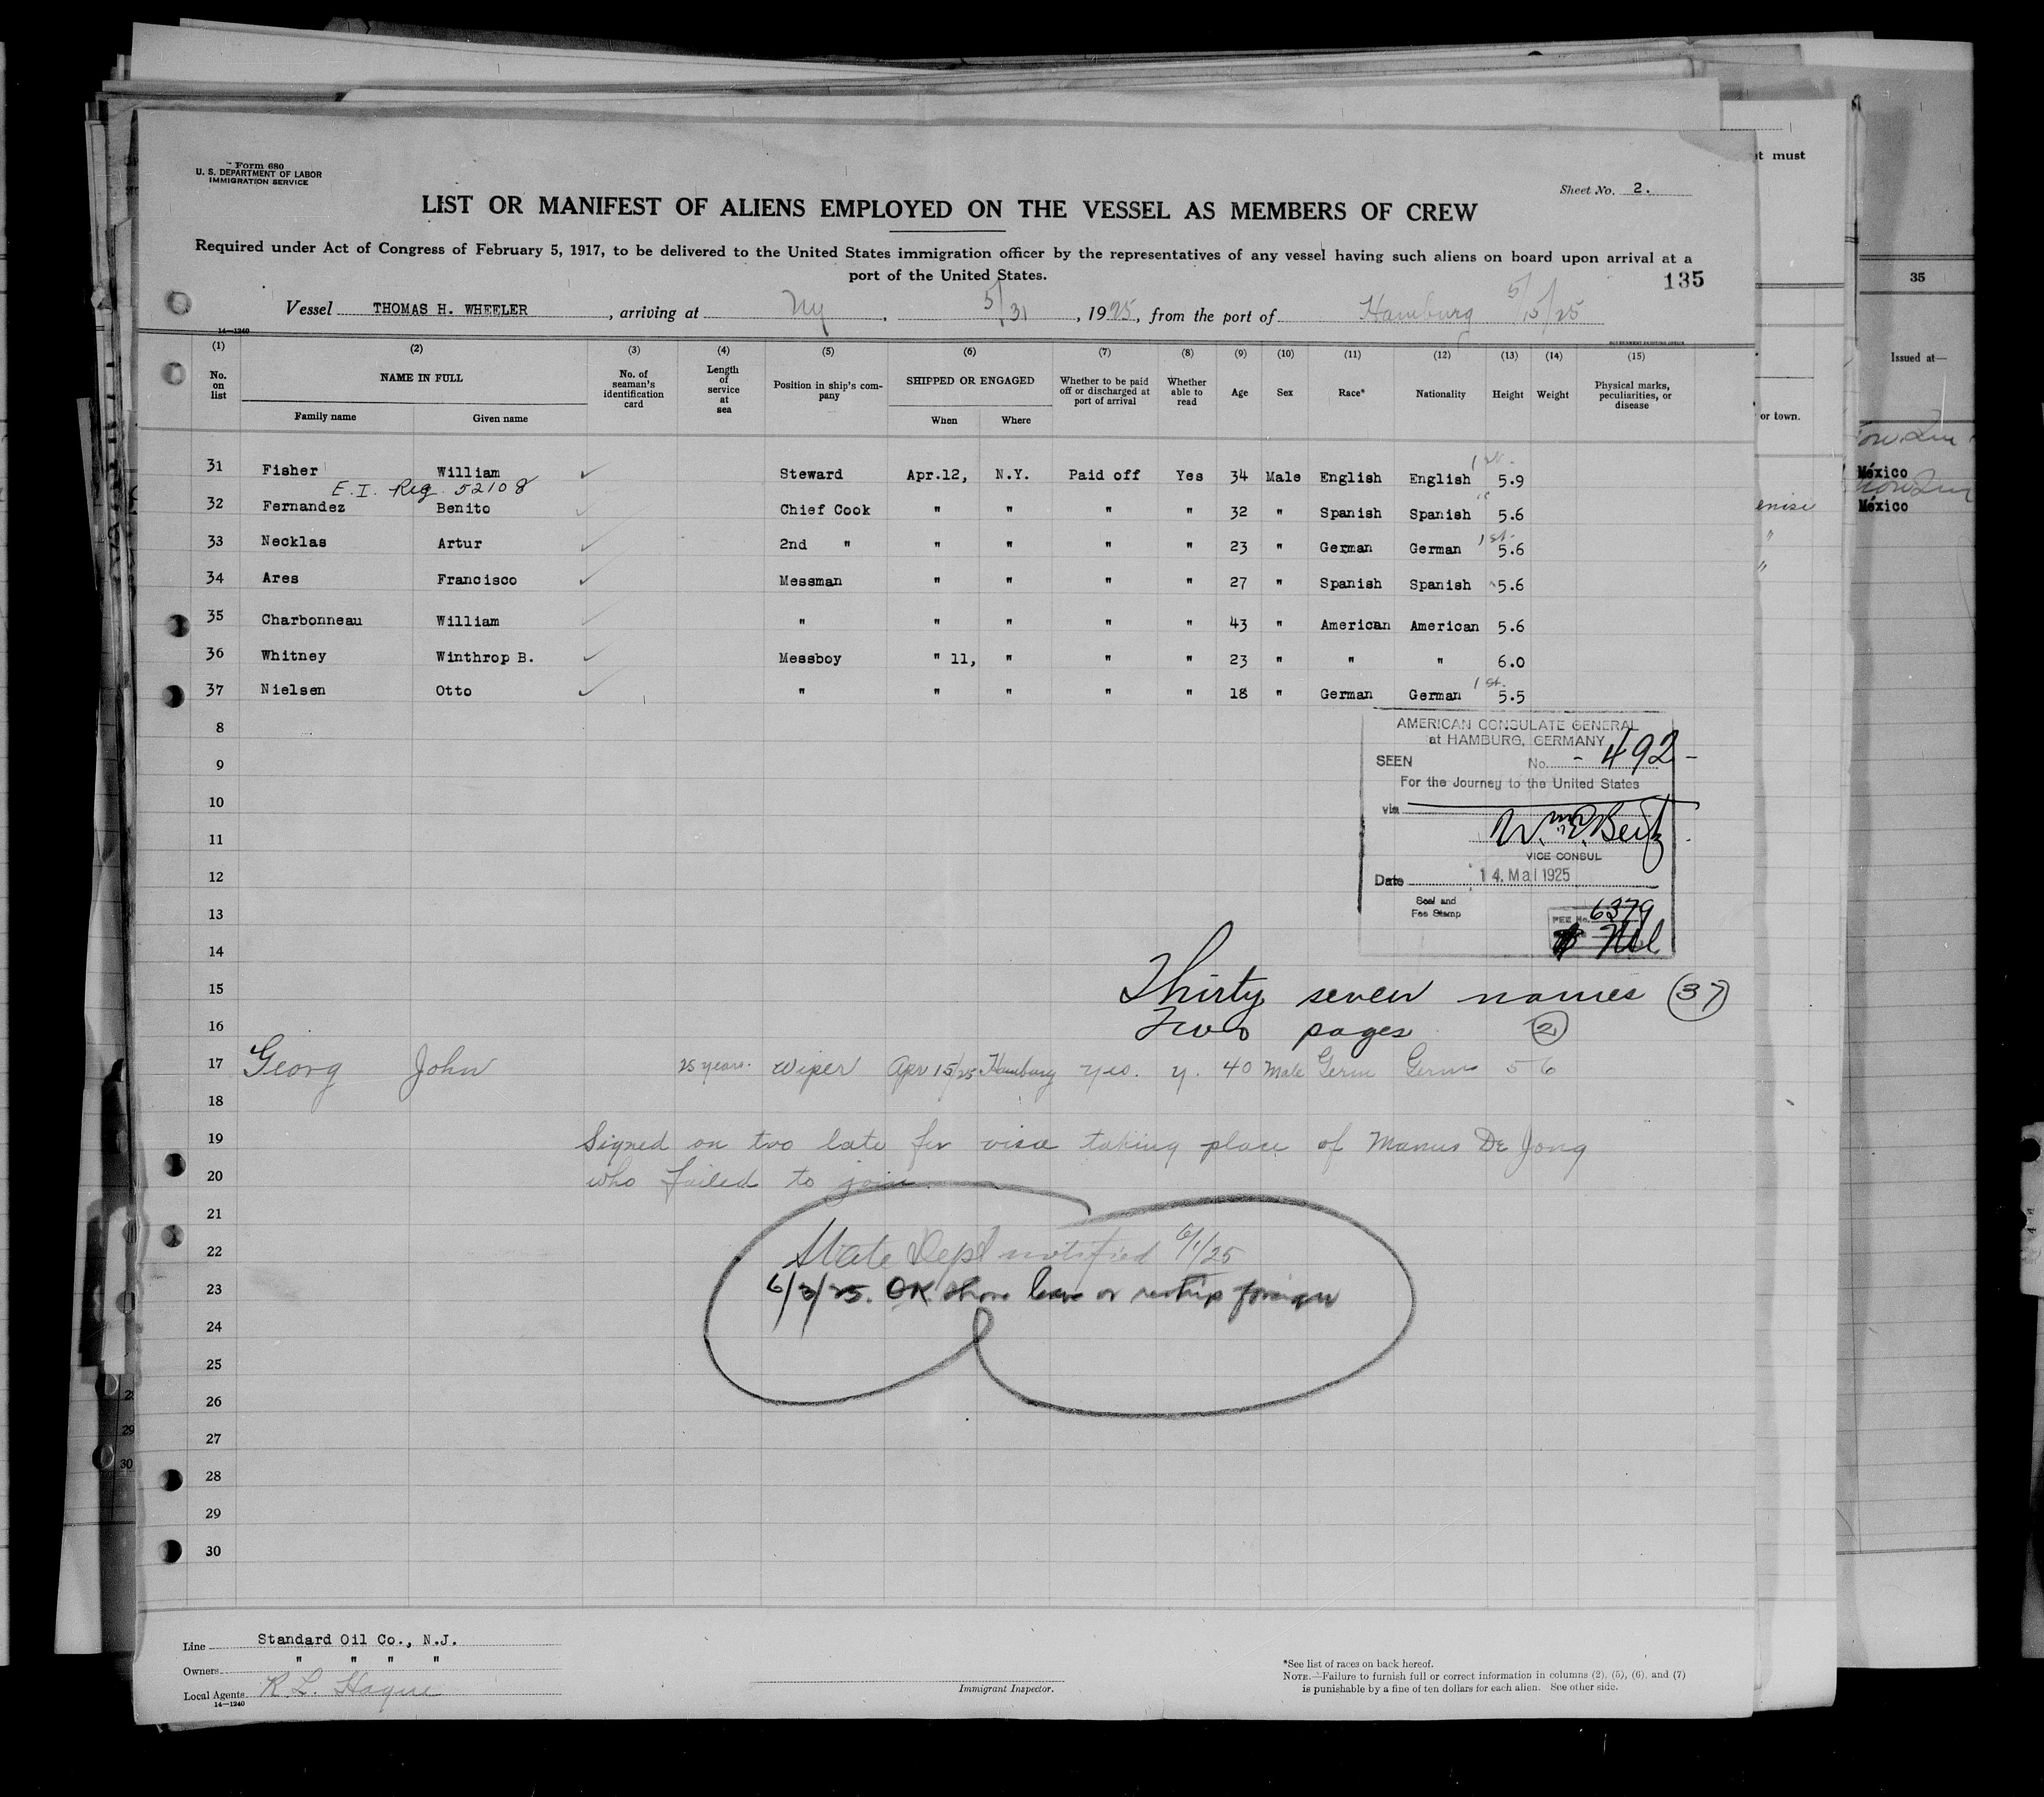 Form 680
U. S. DEPARTMENT OF LABOR
IMMIGRATION SERVICE
Sheet No. 2.
LIST OR MANIFEST OF ALIENS EMPLOYED ON THE VESSEL AS MEMBERS OF CREW
Required under Act of Congress of February 5, 1917, to be delivered to the United States immigration officer by the representatives of any vessel having such aliens on board upon arrival at a
port of the United States.
135
Vessel THOMAS H. WHEELER, arriving at Ny, 5/31, 1925, from the port of Hamburg 5/15/25
14—1240
GOVERNMENT PRINTING OFFICE
(1) (2) (3) (4) (5) (6) (7) (8) (9) (10) (11) (12) (13) (14) (15)
No. on list NAME IN FULL Family name Given name No. of seaman's identification card Length of service at sea Position in ship's company SHIPPED OR ENGAGED When Where Whether to be paid off or discharged at port of arrival Whether able to read Age Sex Race* Nationality Height Weight Physical marks, peculiarities, or disease
31 Fisher William ✓ Steward Apr.12, N.Y. Paid off Yes 34 Male English English 1 st. 5.9
E.I. Reg. 52108
32 Fernandez Benito ✓ Chief Cook " " " " 32 " Spanish Spanish " 5.6
33 Necklas Artur ✓ 2nd " " " " " 23 " German German 1 st. 5.6
34 Ares Francisco ✓ Messman " " " " 27 " Spanish Spanish 5.6
35 Charbonneau William ✓ " " " " " 43 " American American 5.6
36 Whitney Winthrop B. ✓ Messboy " 11, " " " 23 " " " 6.0
37 Nielsen Otto ✓ " " " " " 18 " German German 1 st. 5.5
8
AMERICAN CONSULATE GENERAL
at HAMBURG, GERMANY
9
SEEN No. - 492 -
For the Journey to the United States
10
via
11
VICE CONSUL
12
Date 14. Mai 1925
13
Seal and
Fee Stamp
FEE No. 6379
14
15 Thirty seven names (37)
16 Two pages (2)
17 Georg John 25 years. Wiper Apr 15/25 Hamburg yes. y. 40 Male Germ Germ 5 6
18
19 Signed on too late for visa taking place of Manus De Jong
20 who failed to join.
21
22 State Dept notified 6/1/25
23 6/3/25. OK shore leave or reship foreign
24
25
26
27
28
29
30
Line Standard Oil Co., N.J.
Owners " " " "
Local Agents R. L. Hague
14—1240
Immigrant Inspector.
*See list of races on back hereof.
NOTE.—Failure to furnish full or correct information in columns (2), (5), (6), and (7)
is punishable by a fine of ten dollars for each alien. See other side.
t must
or town.
35
Issued at—
México
México
29
30